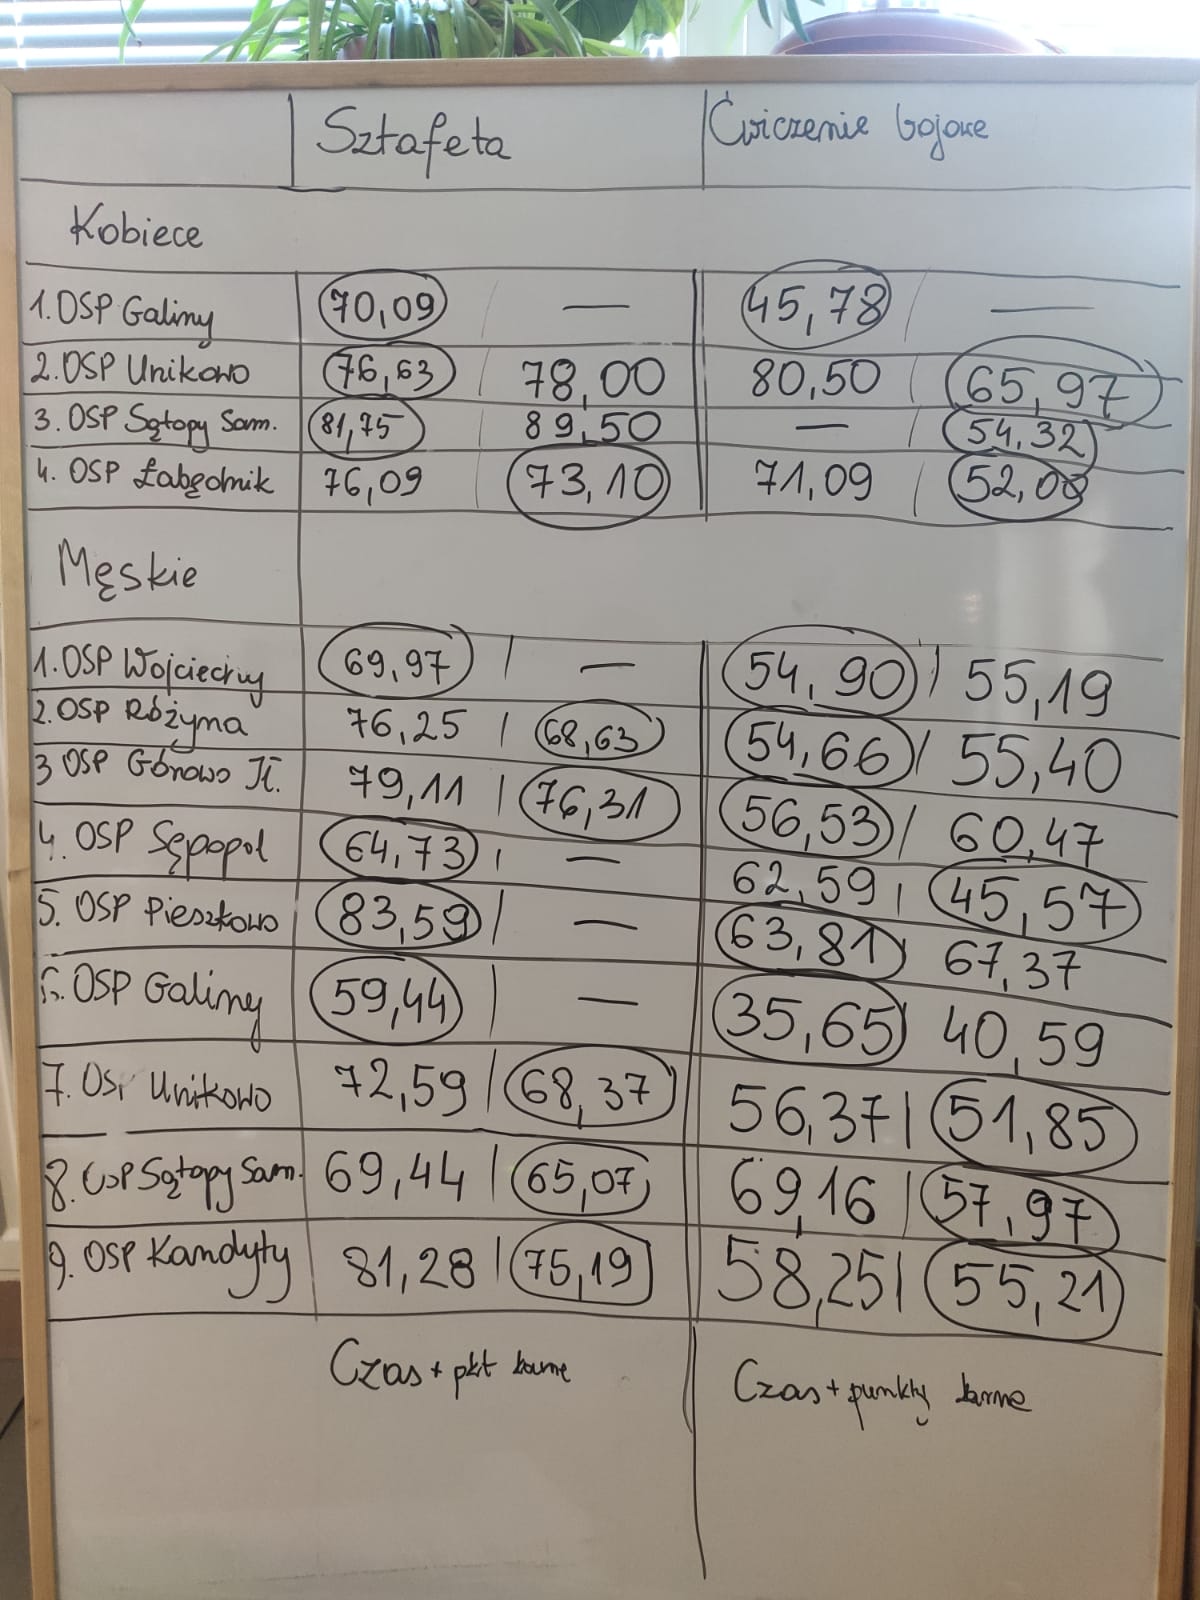 Sztafeta Ćwiczenie bojowe
Kobiece
1. OSP Galiny 70,09 / — 45,78 / —
2. OSP Unikowo 76,63 / 78,00 80,50 / 65,97
3. OSP Sątopy Sam. 81,75 / 89,50 — / 54,32
4. OSP Łabędnik 76,09 / 73,10 71,09 / 52,00
Męskie
1. OSP Wojciechy 69,97 / — 54,90 / 55,19
2. OSP Różyna 76,25 / 68,63 54,66 / 55,40
3 OSP Górowo Ił. 79,11 / 76,31 56,53 / 60,47
4. OSP Sępopol 64,73 / — 62,59 / 45,57
5. OSP Pieszkowo 83,59 / — 63,81 / 67,37
6. OSP Galiny 59,44 / — 35,65 / 40,59
7. OSP Unikowo 72,59 / 68,37 56,37 / 51,85
8. OSP Sątopy Sam. 69,44 / 65,07 69,16 / 57,97
9. OSP Kandyty 81,28 / 75,19 58,25 / 55,21
Czas + pkt karne Czas + punkty karne